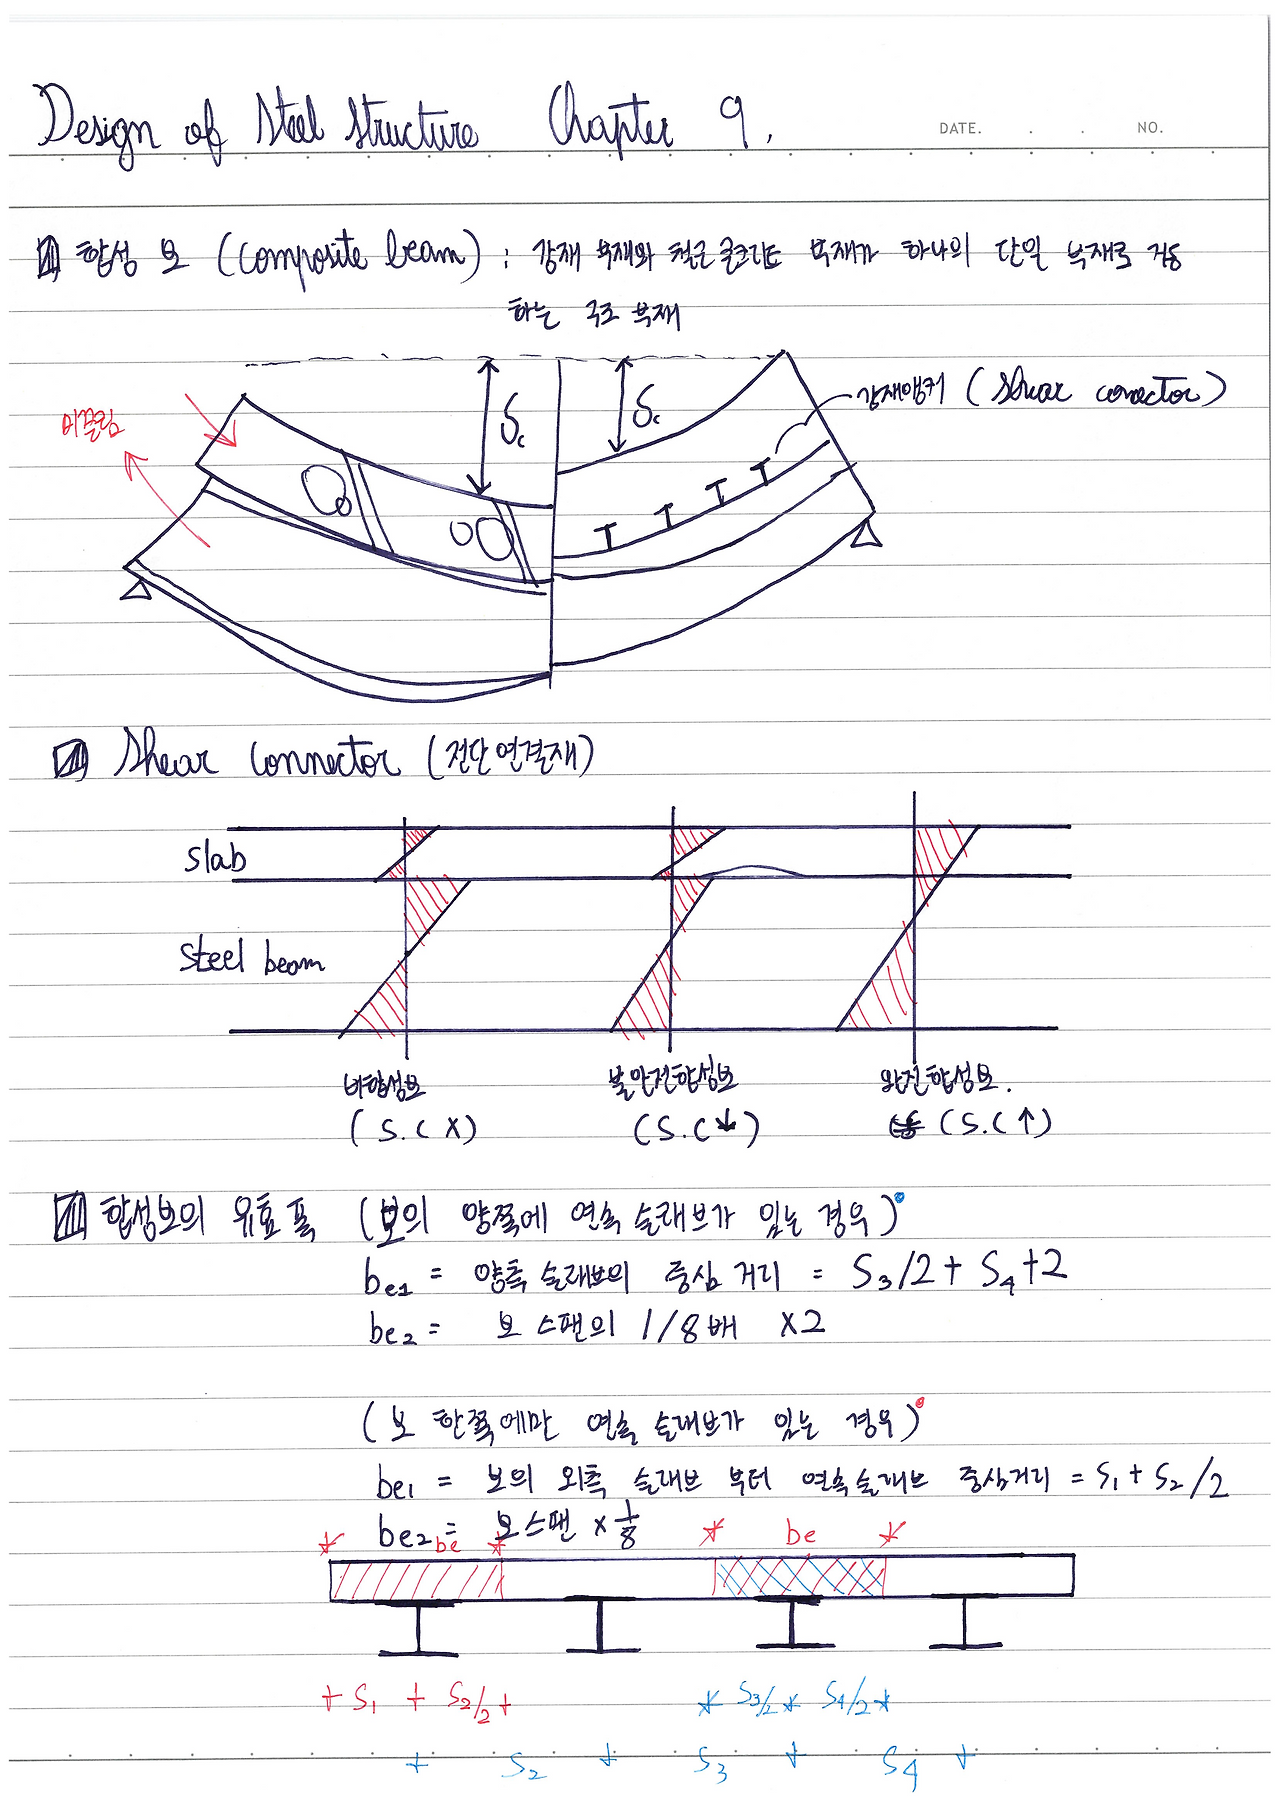 Design of Steel structure Chapter 9.
DATE. . . NO.
합성 보 (composite beam) : 강재 부재와 철근콘크리트 부재가 하나의 단일 부재로 거동
하는 구조 부재
미끌림
δc
δc
강재앵커 (shear conector)
Shear connector (전단연결재)
slab
steel beam
비합성보
불완전합성보
완전합성보.
(S.C X)
(S.C↓)
(S.C↑)
합성보의 유효폭 (보의 양쪽에 연속 슬래브가 있는 경우)
be1 = 양측 슬래브의 중심 거리 = S3/2 + S4+2
be2 = 보 스팬의 1/8배 X2
(보 한쪽에만 연속 슬래브가 있는 경우)
be1 = 보의 외측 슬래브 부터 연속슬래브 중심거리 = S1 + S2/2
be2 = 보스팬 × 1/8
be
be
S1 + S2/2
S3/2 S4/2
S2 S3 S4